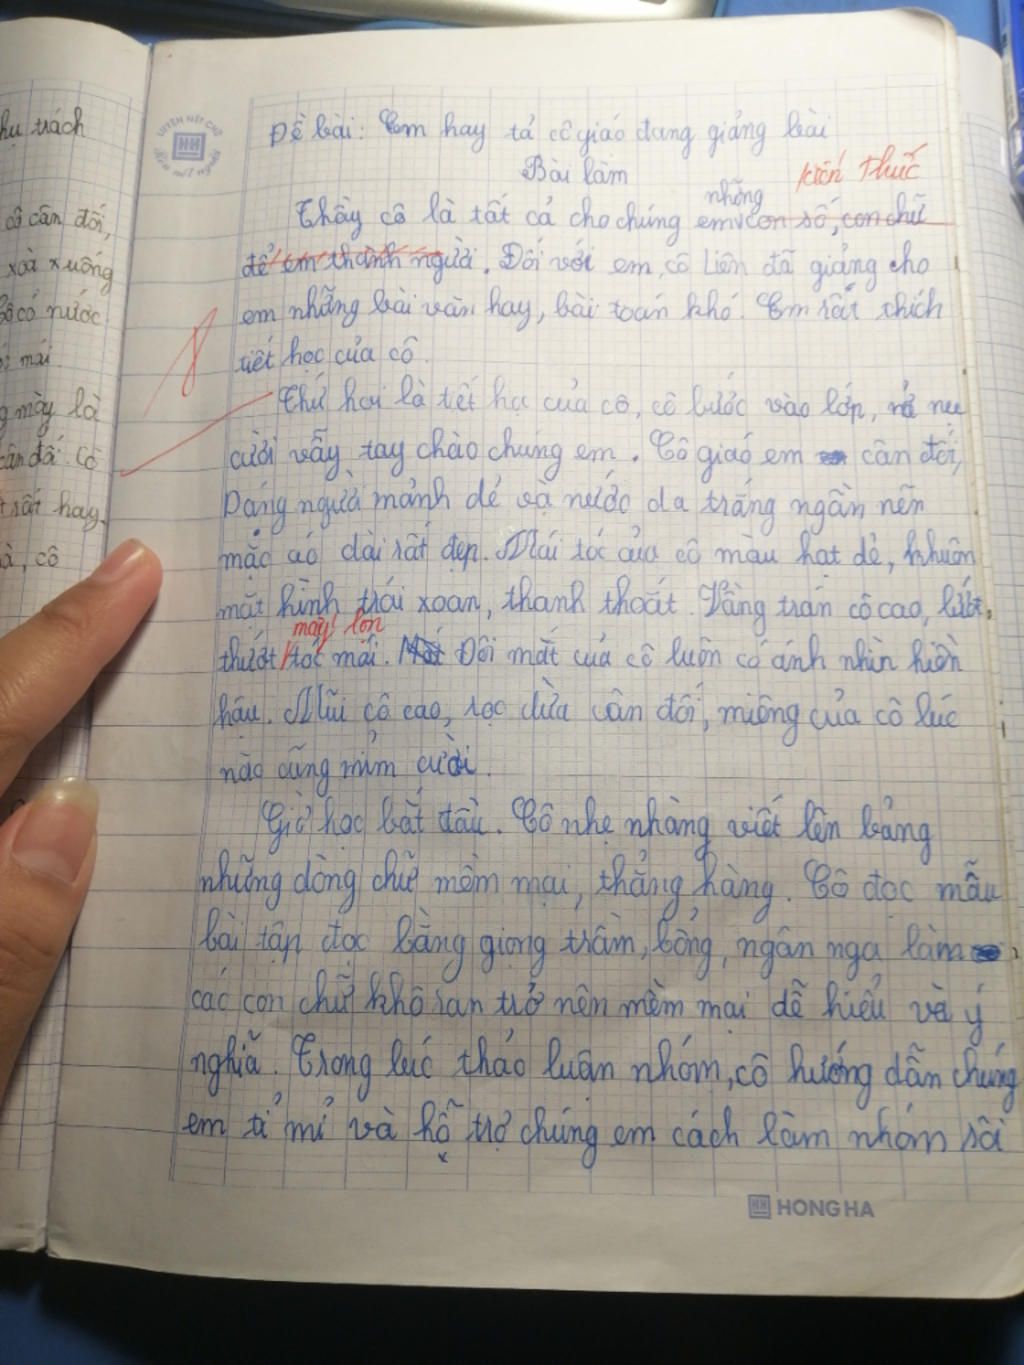 hụ trách
cô cân đối,
xoà xuống
cô có nước
mái
g mày là
cân đối. Cô
rất hay.
à, cô
LUYỆN NÉT CHỮ
HH
Rèn nết người
Đề bài: Em hay tả cô giáo đang giảng bài
Bài làm
kiến thức
những
Thầy cô là tất cả cho chúng em con số, con chữ
để em thành người. Đối với em, cô Liên đã giảng cho
em những bài văn hay, bài toán khó. Em rất thích
tiết học của cô.
8
Thứ hai là tết học của cô, cô bước vào lớp, nở nụ
cười vẫy tay chào chúng em. Cô giáo em cân đối,
Dáng người mảnh dẻ và nước da trắng ngần nên
mặc áo dài rất đẹp. Mái tóc của cô màu hạt dẻ, khuôn
mặt hình trái xoan, thanh thoát. Vầng trán cô cao, lướt
mây lon
thướt tóc mái. Đôi mắt của cô luôn có ánh nhìn hiền
hậu. Mũi cô cao, sọc dừa cân đối, miệng của cô lúc
nào cũng mỉm cười.
Giờ học bắt đầu. Cô nhẹ nhàng viết lên bảng
những dòng chữ mềm mại, thẳng hàng. Cô đọc mẫu
bài tập đọc bằng giọng trầm, bổng, ngân nga làm
các con chữ khô ran trở nên mềm mại dễ hiểu và ý
nghĩa. Trong lúc thảo luận nhóm, cô hướng dẫn chúng
em tỉ mỉ và hỗ trợ chúng em cách làm nhóm sôi
HH HONG HA